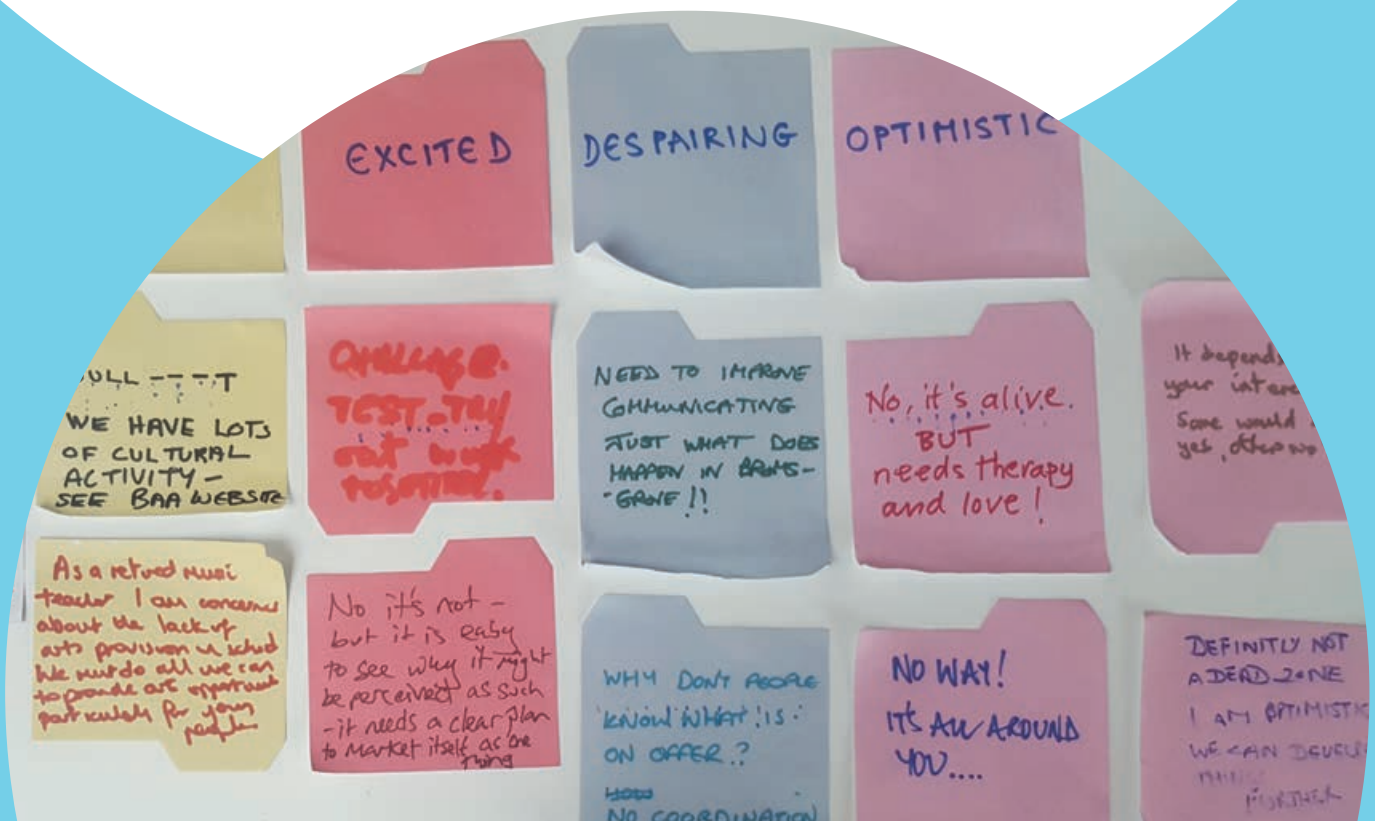 EXCITED
DESPAIRING
OPTIMISTIC
ULL ----T
WE HAVE LOTS
OF CULTURAL
ACTIVITY -
SEE BAA WEBSITE
TEST. TRY
out work
NEED TO IMPROVE
COMMUNICATING
JUST WHAT DOES
HAPPEN IN BROMS-
-GROVE !!
No, it's alive.
BUT
needs therapy
and love!
It depends
your
Some would
yes,
As a retired music
teacher I am concerned
about the lack of
arts provision in school
We must do all we can
to provide
particularly for young
people
No it's not -
but it is easy
to see why it might
be perceived as such
- it needs a clear plan
to market itself as one
thing
WHY DON'T PEOPLE
KNOW WHAT IS
ON OFFER.?
HOW
NO COORDINATION
NO WAY!
IT'S ALL AROUND
YOU....
DEFINITLY NOT
A DEAD ZONE
I AM OPTIMISTIC
WE CAN DEVELO
FURTHER